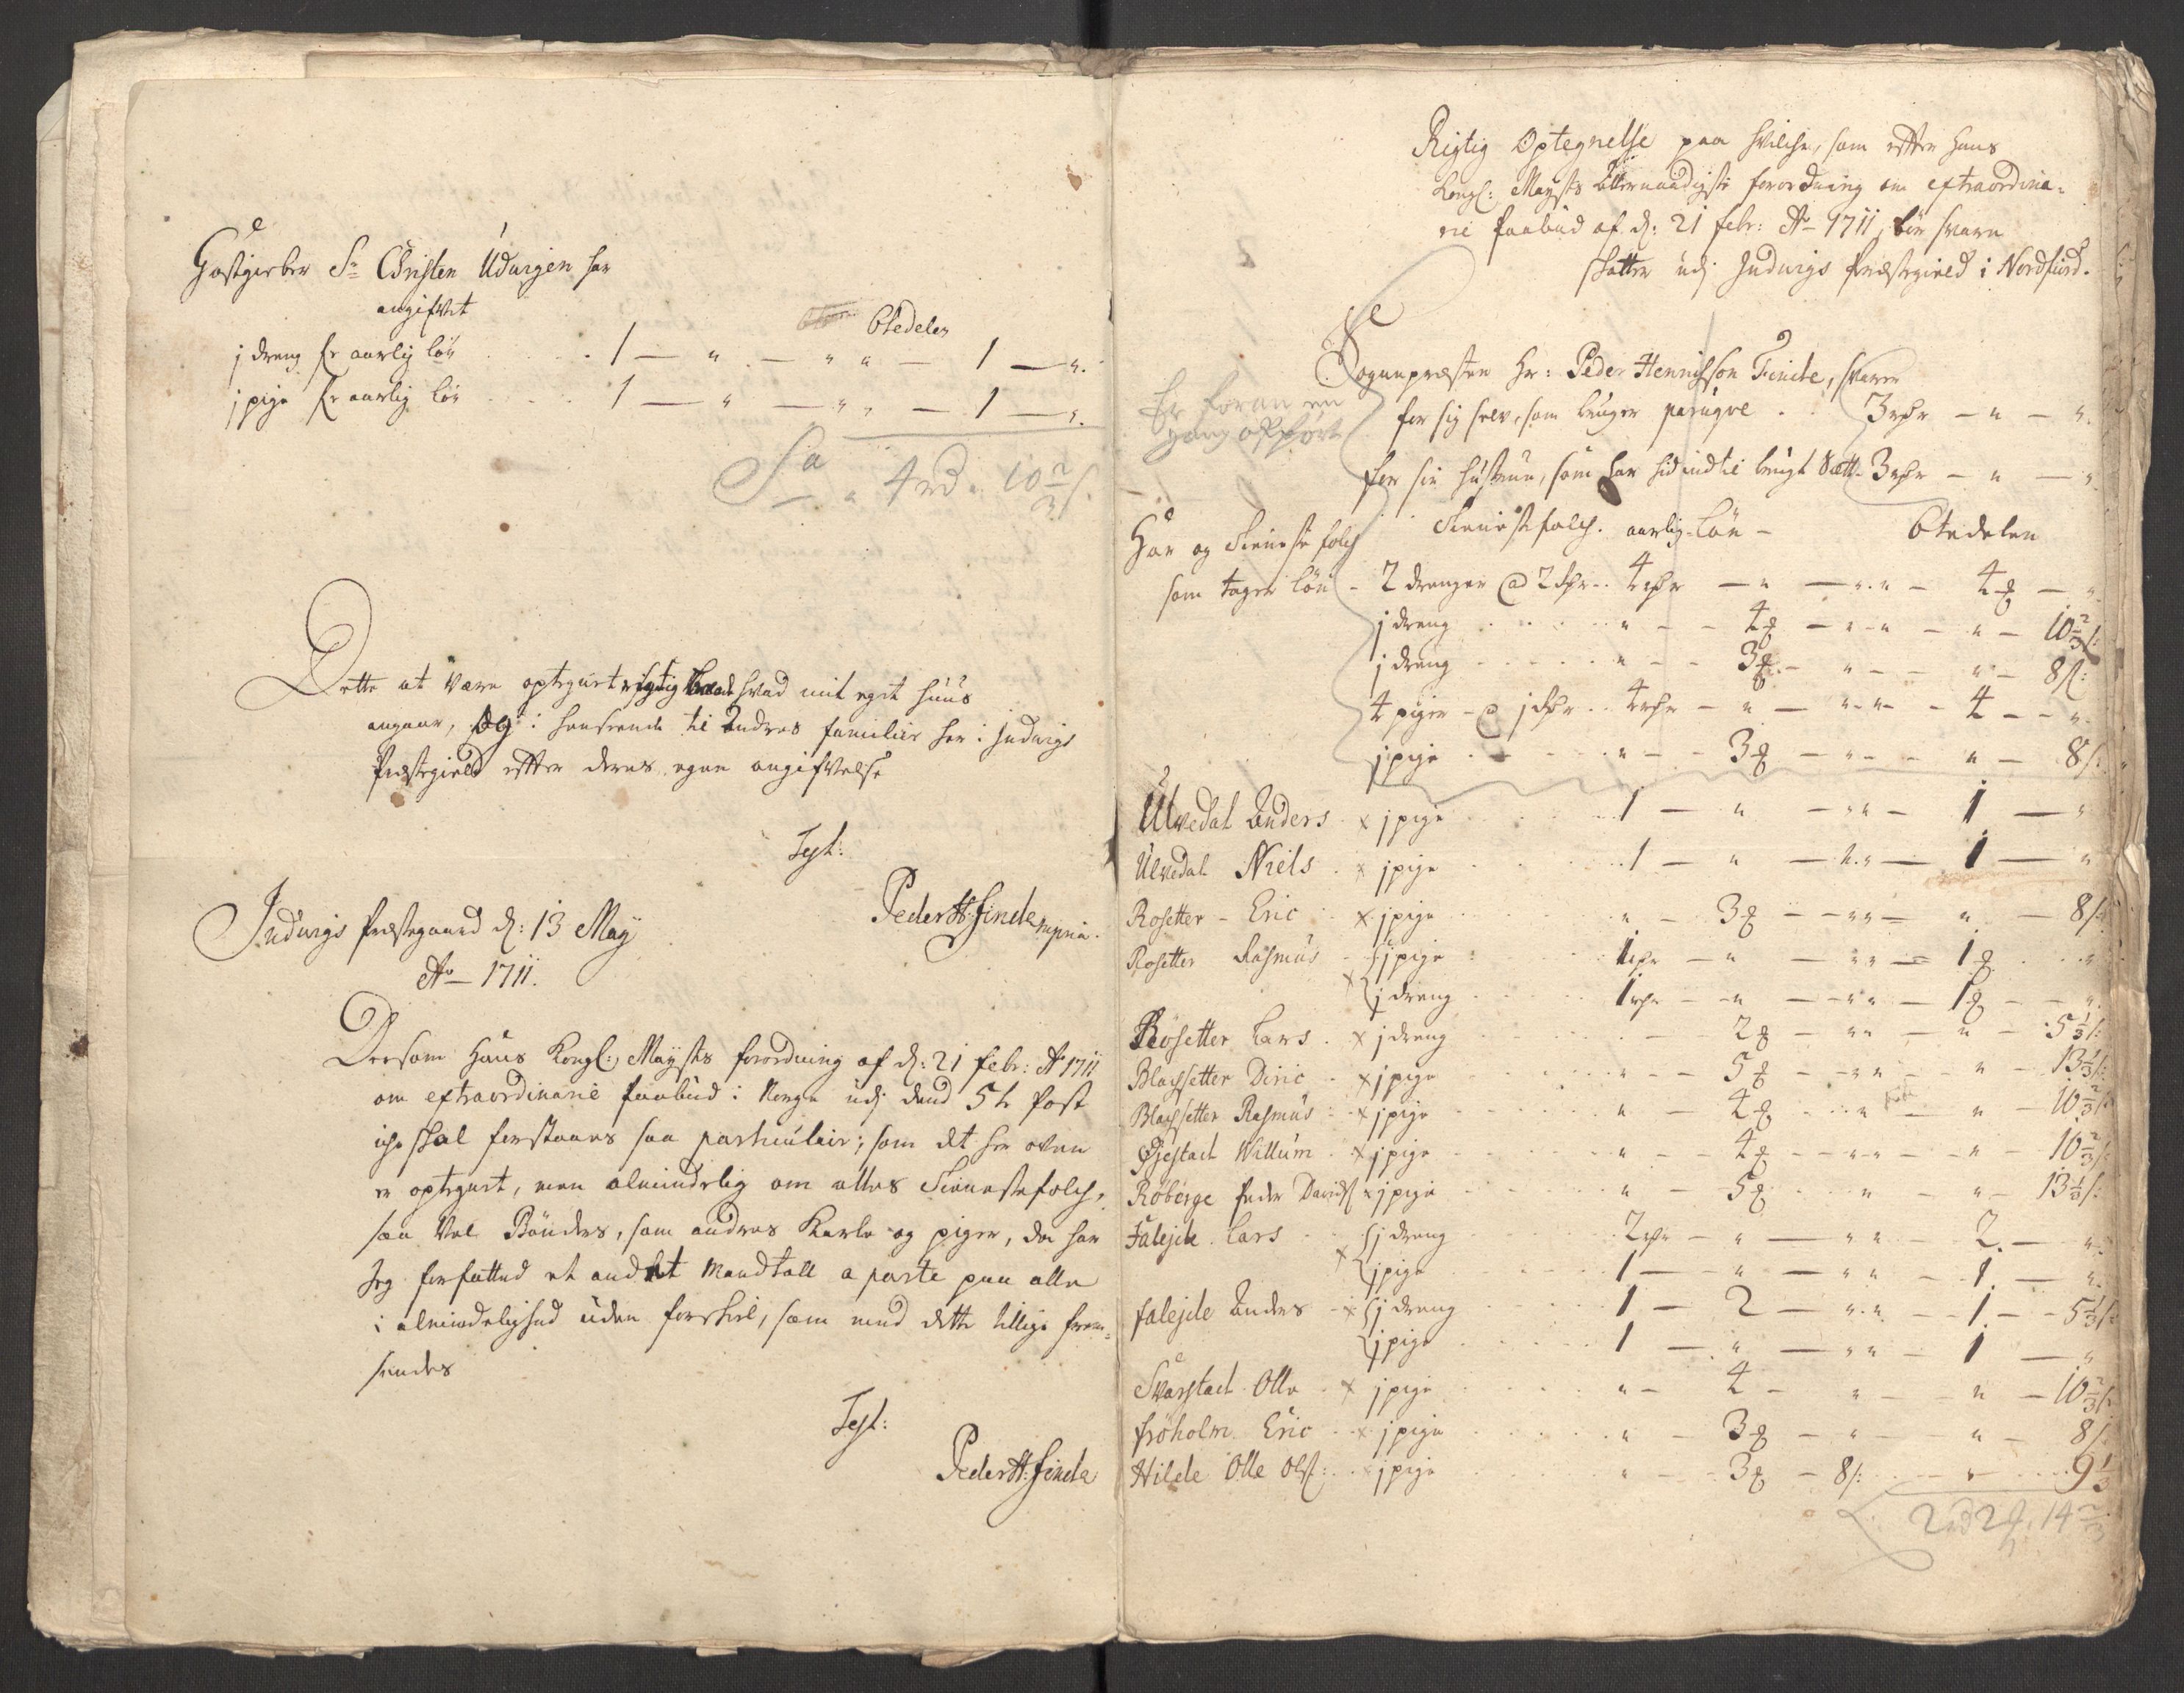 Gæstgierber Sr Christen Udvigen har
angifvet
6tedelen
j dreng for aarlig løn . . . . 1 — " — " " — 1 — ".
j pige for aarlig løn . . . . 1 — " — " " — 1 — ".
Sa " 4 rd. 10 2/3 s.
Dette at være optegnet rigtig baade hvad mit eget huus
angaar, og i henseende til andres familier her i Indvigs
Præstegield efter deres egen angifvelse
Test:
Peder H: Finde mpria.
Indvigs Præstegaard d: 13 May
Ao 1711.
Dersom Hans Kongl: Maysts forordning af d: 21 febr: Ao 1711
om extraordinarie paabud i Norge udj dend 5te Post
iche skal forstaaes saa particulair, som det her oven
er optegnet, men almindelig om alles Tienestefolch,
saa vel Bønders, som andres Karle og piger, da har
Jeg forfatted et andet Mandtall a parte paa alle
i almindelighed uden forskiel, som med dette tillige frem=
sendes
Test:
Peder H: Finde
Rigtig Optegnelse paa hvilche, som efter Hans
Kongl: Maysts allernaadigste forordning om extraordina=
rie paabud af d: 21 febr: Ao 1711, bør svare
skatter udj Indvigs Præstegield i Nordfiord.
Sognepræsten Hr: Peder Henrichsøn Finde, svarer
for sig selv, som bruger parüqve . . 3 rdr — " — ".
Er foran en
gang opført
for sin hustrue, som har hid indtil brugt 3 rdr — " — ".
Har og Tieneste folch Tieneste folch. aarlig løn — 6tedelen
som tager løn - 2 drenger @ 2 rdr . . 4 rdr — " — " " — 4 — ".
j dreng . . . . " — 4 — " " — " — 10 2/3 s:
j dreng . . . . " — 3 — " — " — 8 s:
4 piger @ j rdr . . 4 rdr — " — " " — 4 — ".
j pige . . . . " — 3 — " — " — 8 s:
Ulvedal Anders x j pige . . . 1 — " — " " — 1 — "
Ulvedal Niels . x j pige . . . 1 — " — " " — 1 — "
Rosetter - Eric x j pige . . . " — 3 — " " — " — 8 s:
Rosetter Rasmus - j pige . . . 1 rdr — " — " " — 1 . . "
x j dreng . . . 1 rdr — " — " " — 1 — ".
Rosetter Lars . x j dreng . . . — 2 — " " — " — 5 1/3 s:
Blachsetter Diric . x j pige . . . " — 5 — " " — " — 13 1/3 s:
Blachsetter Rasmus : x j pige . . . " — 4 . . " — " — 10 2/3 s
Giestad Willum . x j pige . . . " — 4 — " " — " — 10 2/3 s:
Roberge Peder Davids x j pige . . . " — 5 . . " — " — 13 1/3 s:
Falejde Lars . . j dreng . . . 2 rdr — " — " " — 2. — "
x j pige . . . 1 — " — " " — 1. — ".
Falejde Anders - x j dreng . . . 1 — 2 — " " — 1. — 5 1/3 s:
j pige . . . 1 — " — " " — 1 — "
Svarstad Olle . x j pige . . . " — 4 — " — " — 10 2/3 s
Frøholm Eric . x j pige . . . " — 3 — " — " — 8 s
Hilde Olle Ols: . . j pige . . . " — 3 — 8 s: . . " . . 9 1/3
2 rd 2 14 2/3